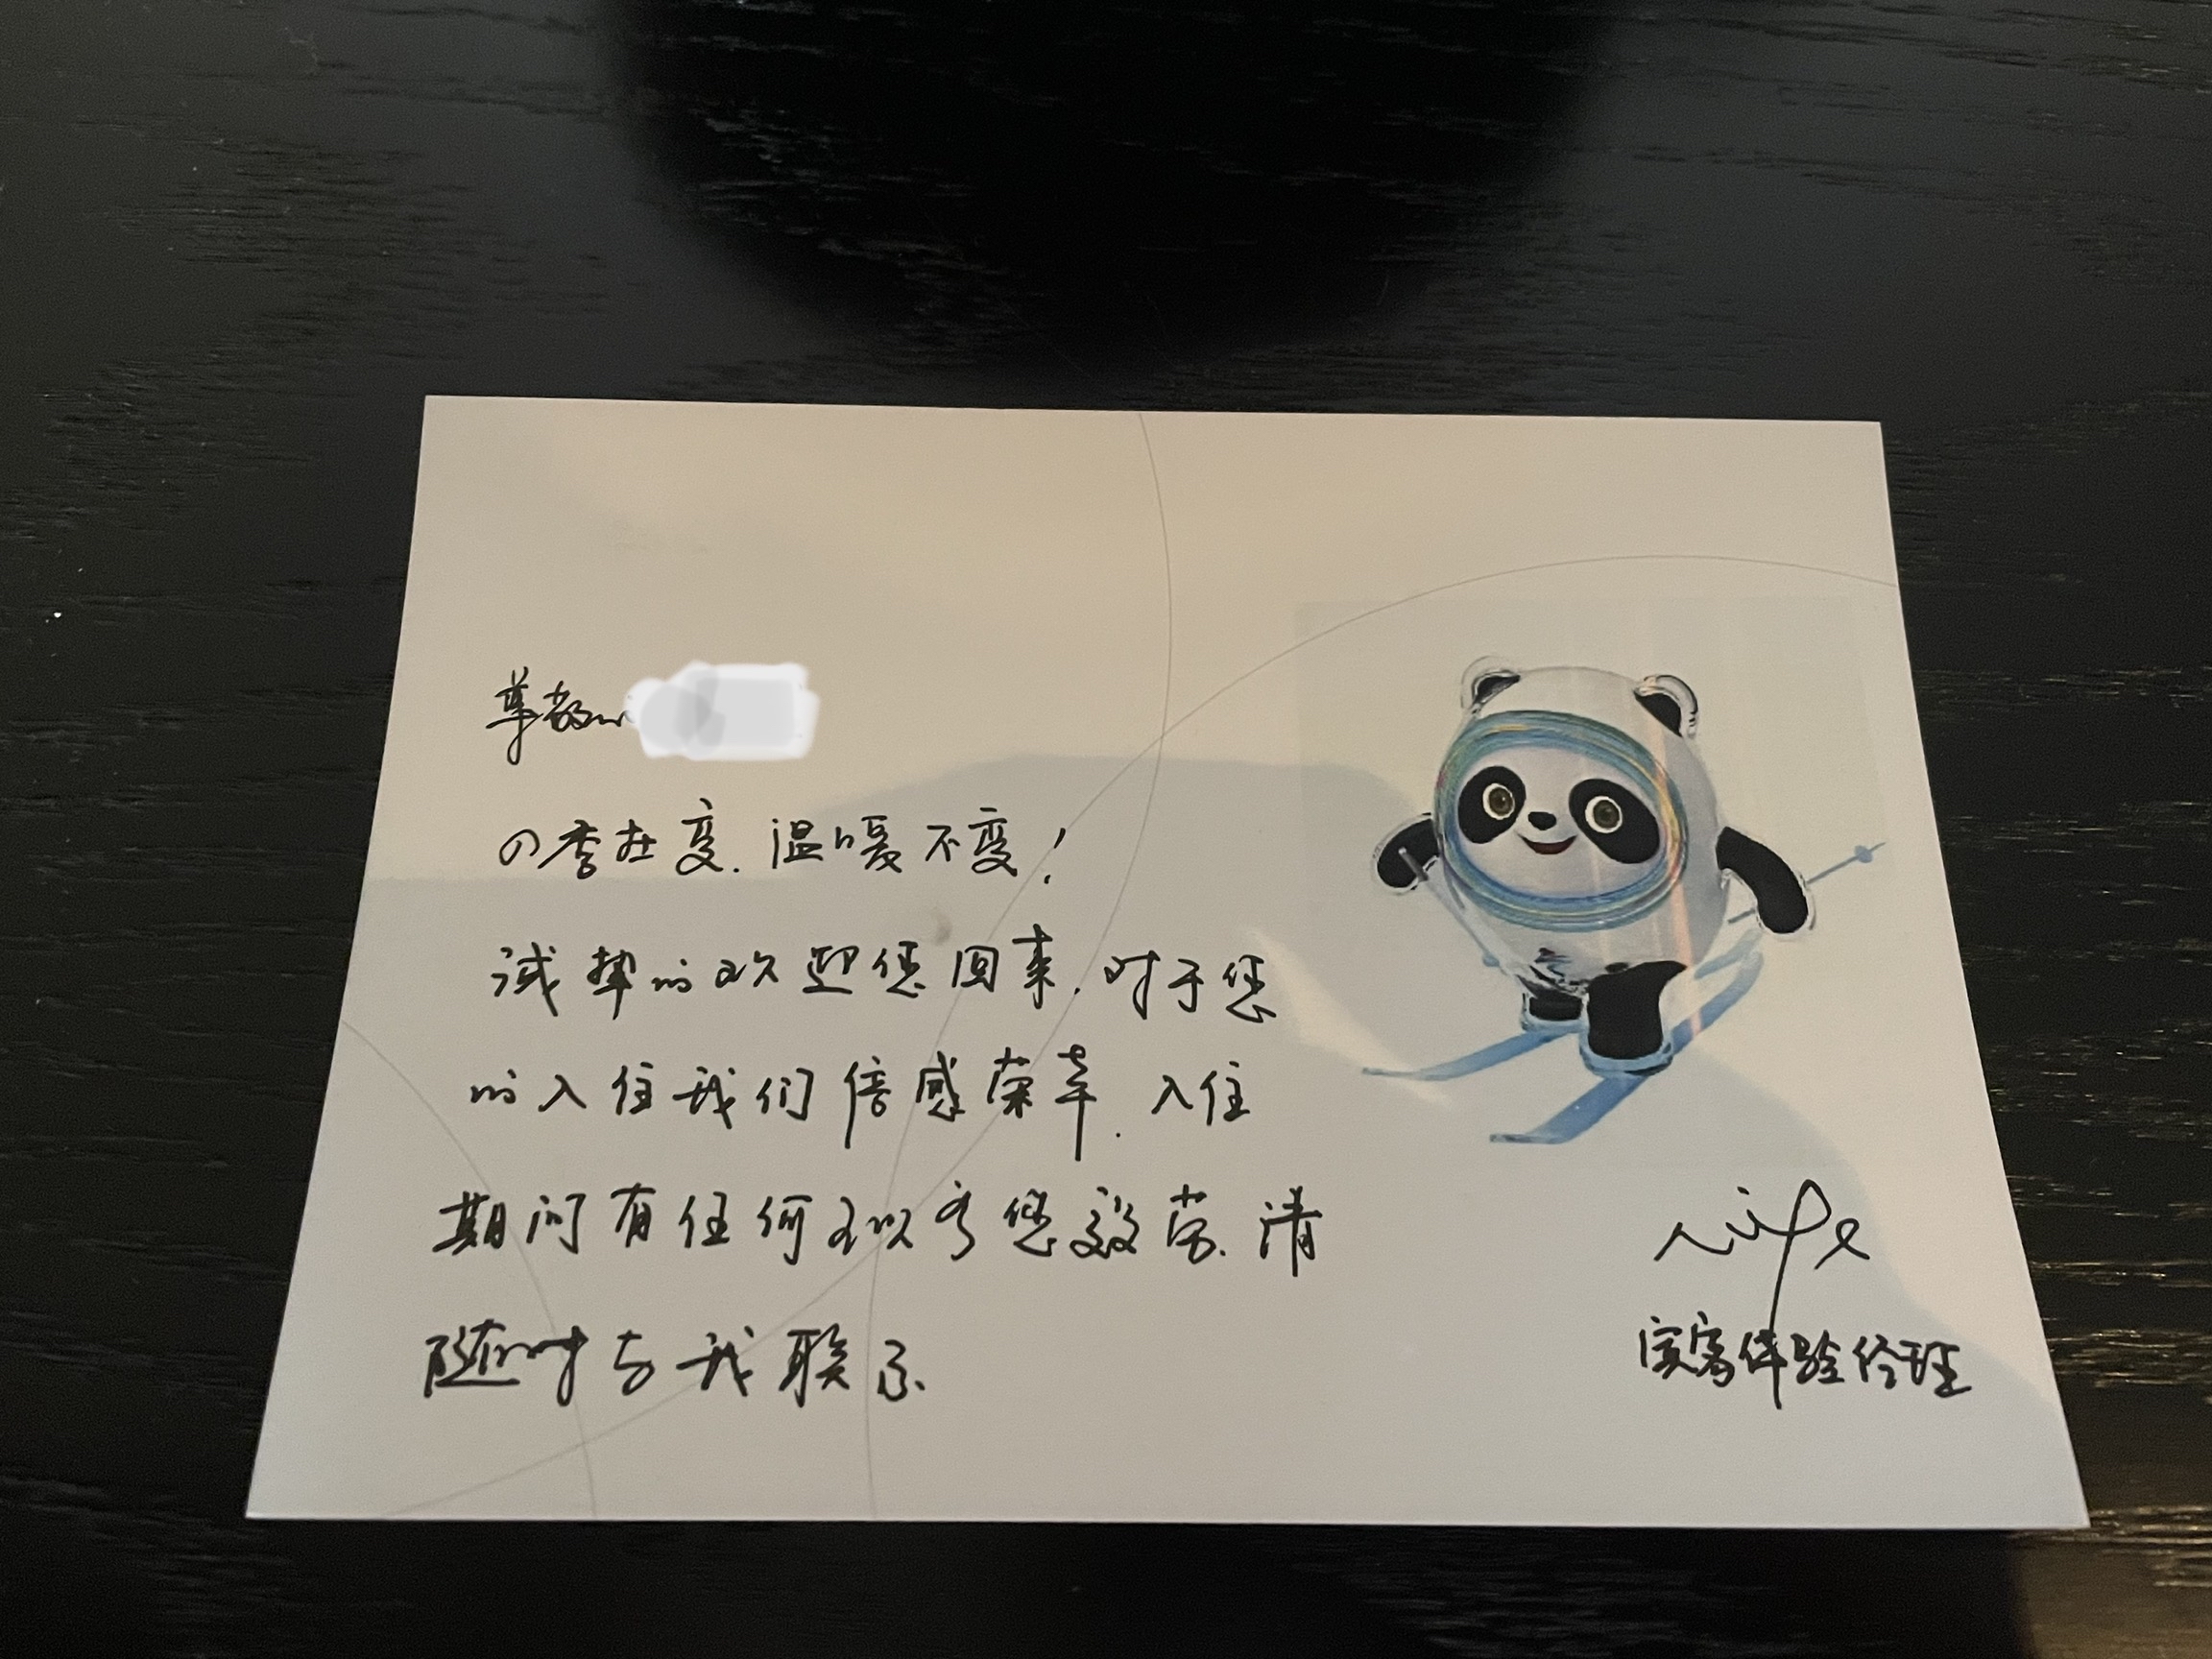 尊敬的
四季在变.温暖不变!
诚挚的欢迎您回来.对于您
的入住我们倍感荣幸.入住
期间有任何可以为您效劳.请
随时与我联系.
宾客体验经理